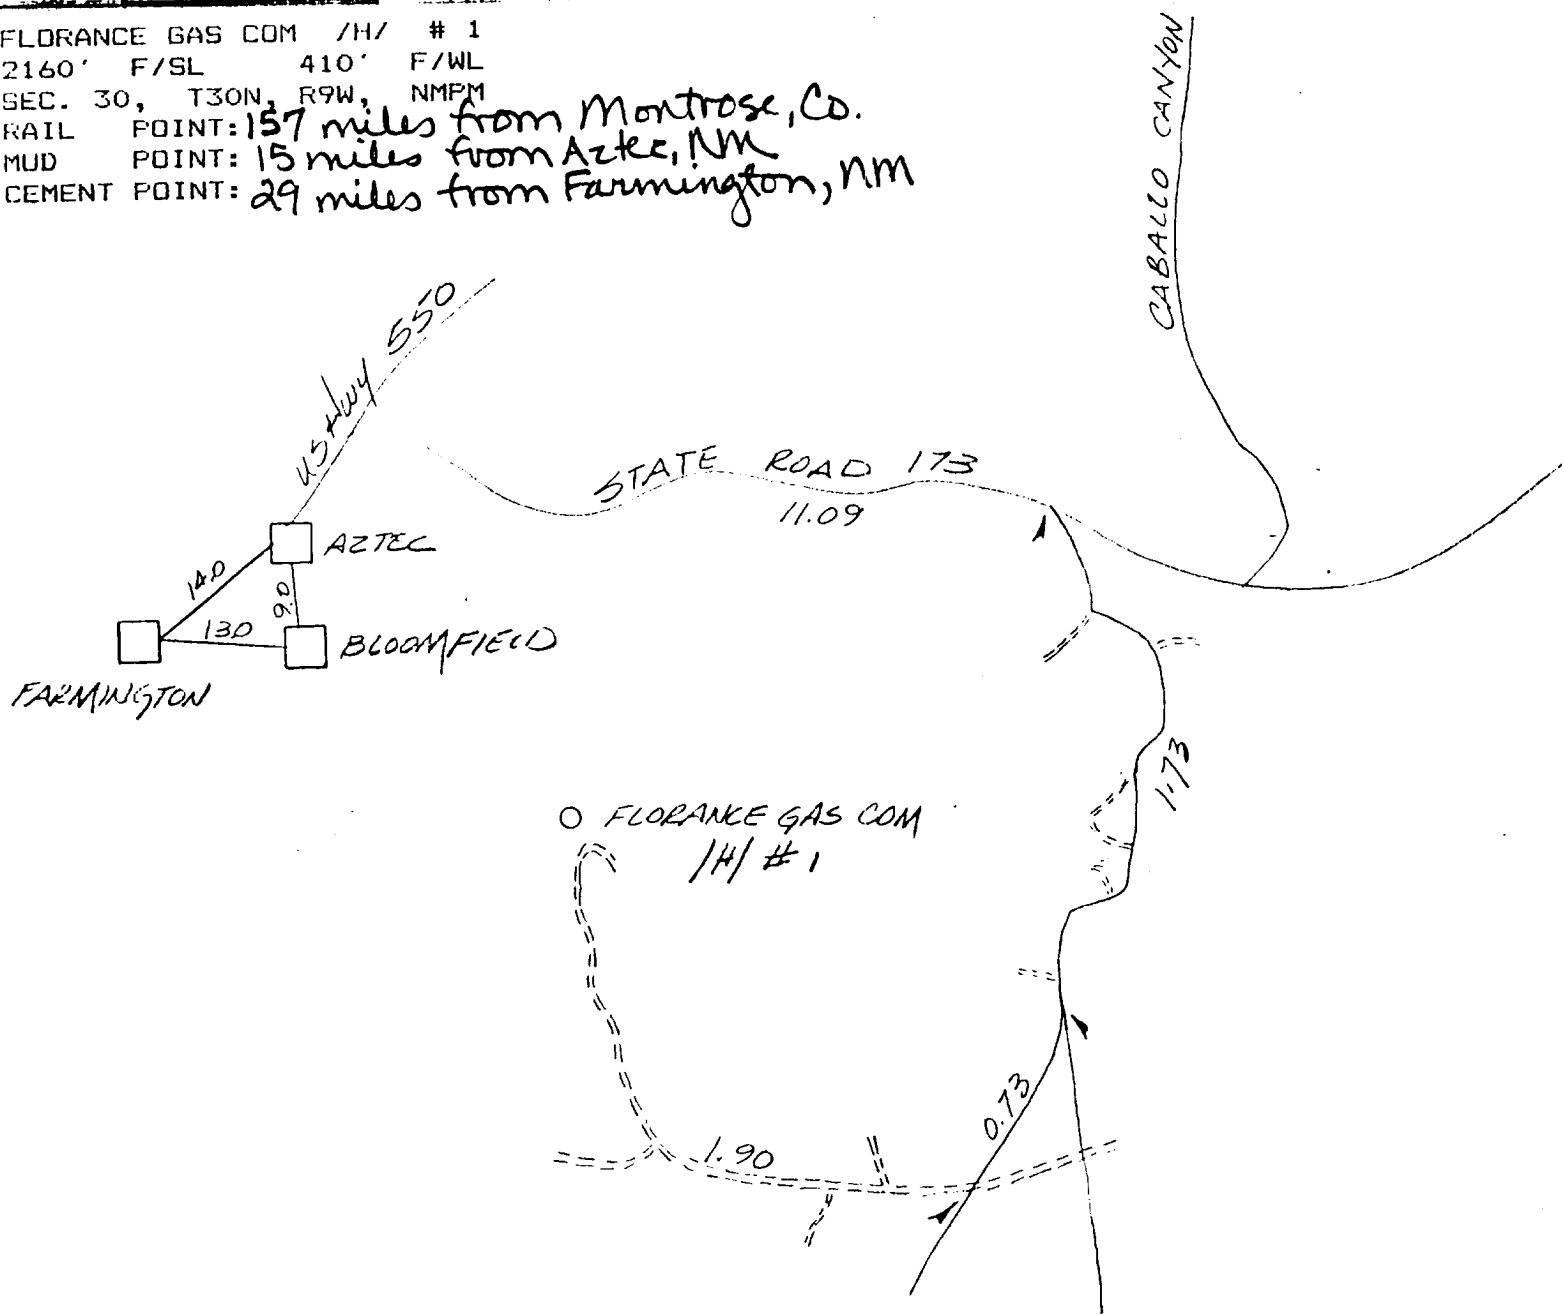 FLORANCE GAS COM /H/ # 1
2160' F/SL 410' F/WL
SEC. 30, T30N, R9W, NMPM
RAIL POINT: 157 miles from Montrose, Co.
MUD POINT: 15 miles from Aztec, NM
CEMENT POINT: 29 miles from Farmington, NM
CABALLO CANYON
US Hwy 550
STATE ROAD 173
11.09
AZTEC
14.0
9.0
13.0
BLOOMFIELD
FARMINGTON
1.73
FLORANCE GAS COM
/H/ # 1
0.73
1.90